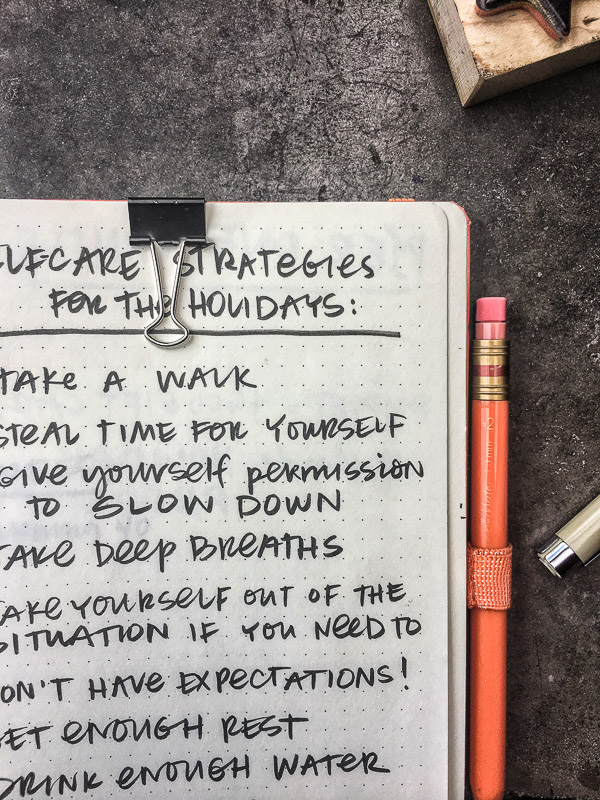 ELFCARE STRATEGIES
FOR THE HOLIDAYS:
TAKE A WALK
STEAL TIME FOR YOURSELF
GIVE yourself permission
TO SLOW DOWN
TAKE DEEP BREATHS
TAKE YOURSELF OUT OF THE
SITUATION IF YOU NEED TO
ON'T HAVE EXPECTATIONS!
GET ENOUGH REST
DRINK ENOUGH WATER
2